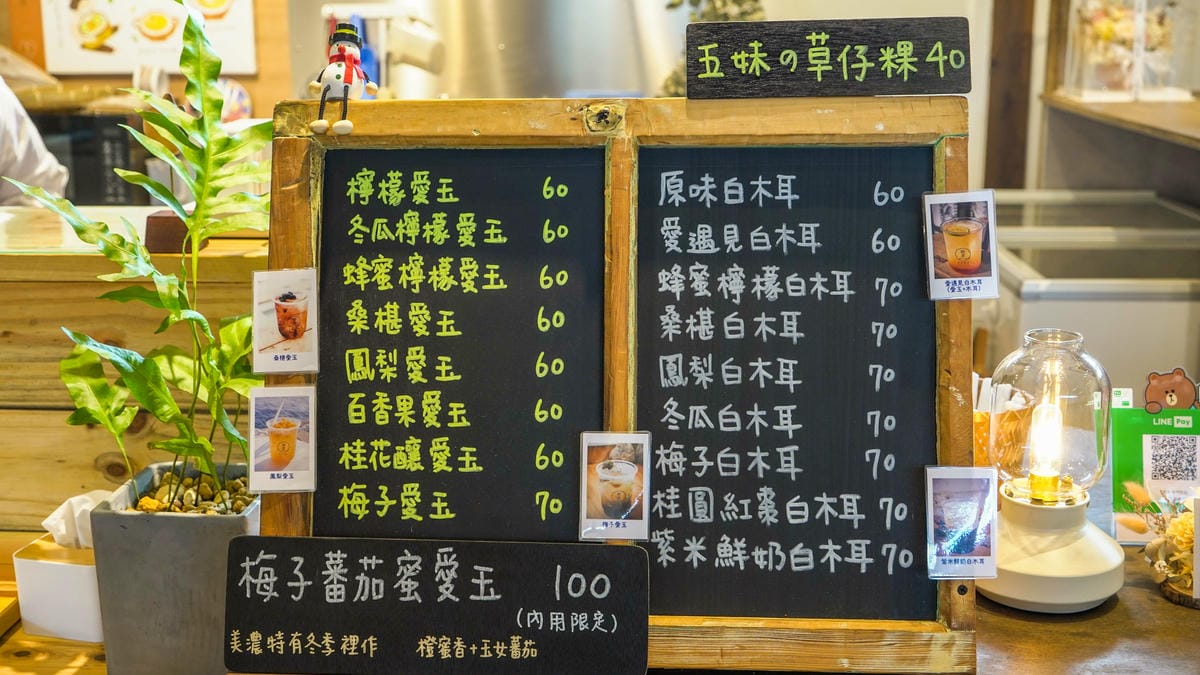 五妹の草仔粿 40
檸檬愛玉 60
冬瓜檸檬愛玉 60
蜂蜜檸檬愛玉 60
桑椹愛玉 60
鳳梨愛玉 60
百香果愛玉 60
桂花釀愛玉 60
梅子愛玉 70
原味白木耳 60
愛遇見白木耳 60
蜂蜜檸檬白木耳 70
桑椹白木耳 70
鳳梨白木耳 70
冬瓜白木耳 70
梅子白木耳 70
桂圓紅棗白木耳 70
紫米鮮奶白木耳 70
梅子蕃茄蜜愛玉 100
(內用限定)
美濃特有冬季裡作 橙蜜香+玉女蕃茄
桑椹愛玉
鳳梨愛玉
梅子愛玉
愛遇見白木耳
(愛玉+木耳)
紫米鮮奶白木耳
LINE Pay